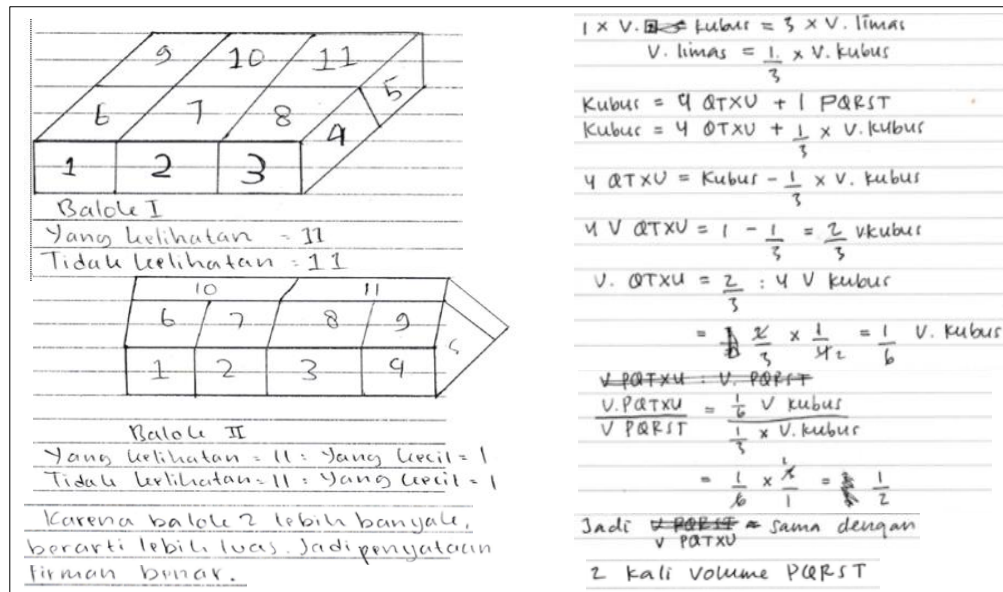 9 10 11
6 7 8 4 5
1 2 3
Balok I
Yang kelihatan = 11
Tidak kelihatan = 11
10 11
6 7 8 9
1 2 3 4 5
Balok II
Yang kelihatan = 11 : Yang kecil = 1
Tidak kelihatan = 11 : Yang kecil = 1
Karena balok 2 lebih banyak,
berarti lebih luas. Jadi penyataan
firman benar.
1 x V. kubus = 3 x V. limas
V. limas = 1/3 x V. kubus
Kubus = 4 QTXU + 1 PQRST
Kubus = 4 QTXU + 1/3 x V. kubus
4 QTXU = Kubus - 1/3 x V. kubus
4 V QTXU = 1 - 1/3 = 2/3 Vkubus
V. QTXU = 2/3 : 4 V kubus
= 2/3 x 1/4 2 = 1/6 V. kubus
V PQTXU : V. PQRST
V.PQTXU / V PQRST = 1/6 V kubus / 1/3 x V. kubus
= 1/6 x 3/1 = 1/2
Jadi V PQRST = sama dengan
V PQTXU
2 kali volume PQRST